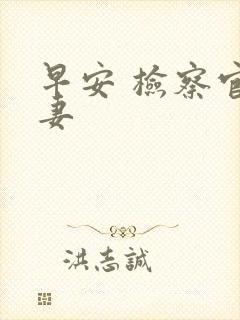 早安 檢察官
妻
洪志誠